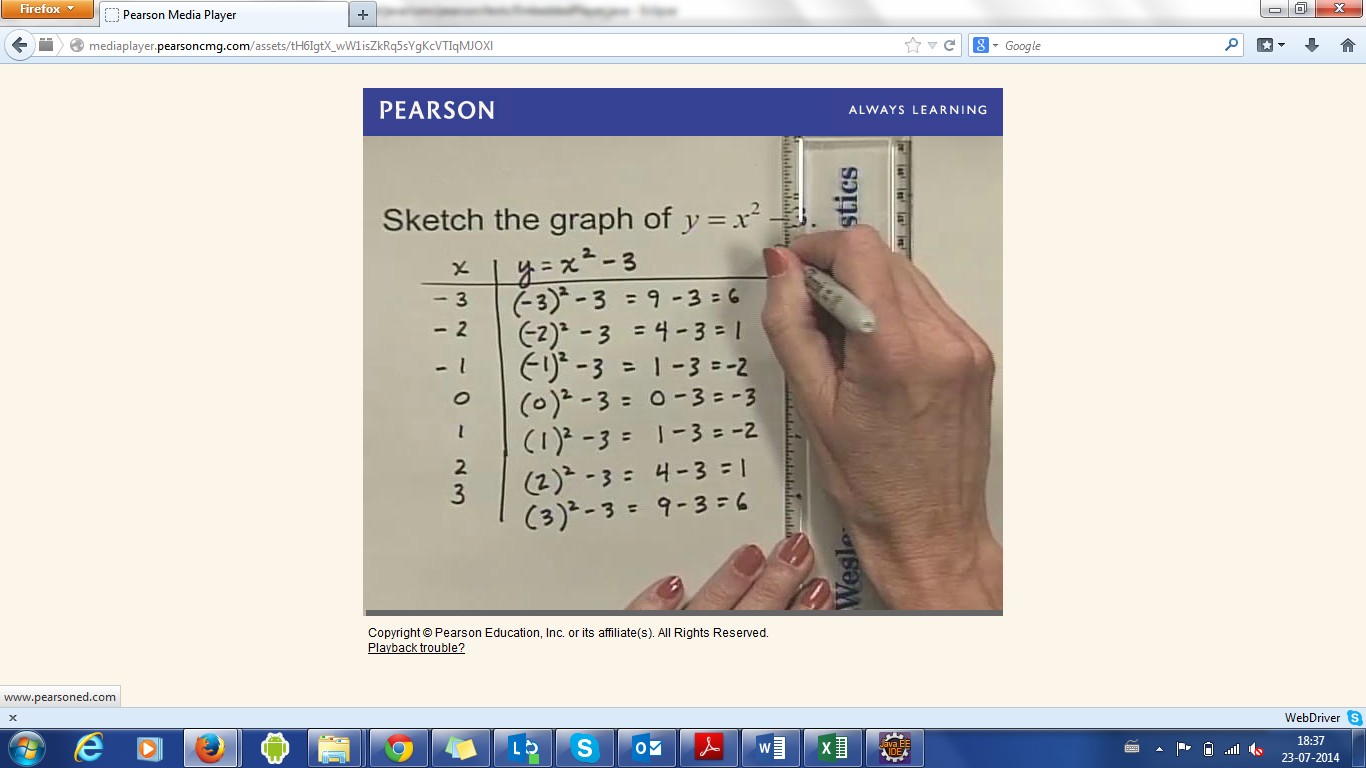 Firefox
Pearson Media Player
mediaplayer.pearsoncmg.com/assets/tH6IgtX_wW1isZkRq5sYgKcVTIqMJOXI
Google
PEARSON
ALWAYS LEARNING
Sketch the graph of y = x² – 3.
x | y = x² - 3
-3 | (-3)² - 3 = 9 - 3 = 6
-2 | (-2)² - 3 = 4 - 3 = 1
-1 | (-1)² - 3 = 1 - 3 = -2
0 | (0)² - 3 = 0 - 3 = -3
1 | (1)² - 3 = 1 - 3 = -2
2 | (2)² - 3 = 4 - 3 = 1
3 | (3)² - 3 = 9 - 3 = 6
stics
Wesle
Copyright © Pearson Education, Inc. or its affiliate(s). All Rights Reserved.
Playback trouble?
www.pearsoned.com
x
WebDriver
Java EE
IDE
18:37
23-07-2014